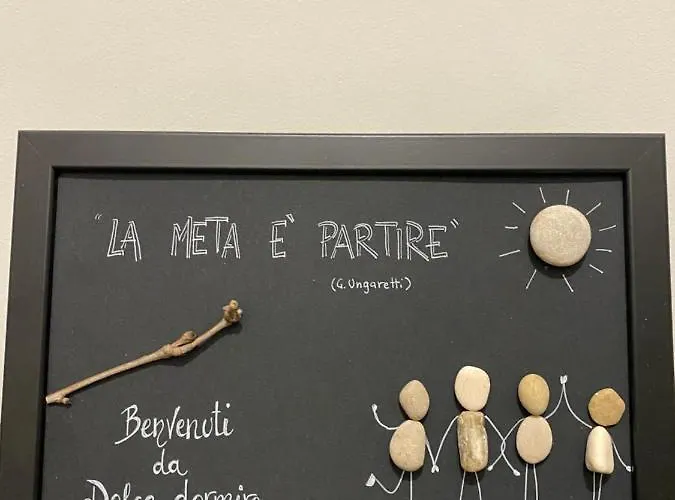 "LA META E` PARTIRE"
(G. Ungaretti)
Benvenuti
da
Dolce dormire